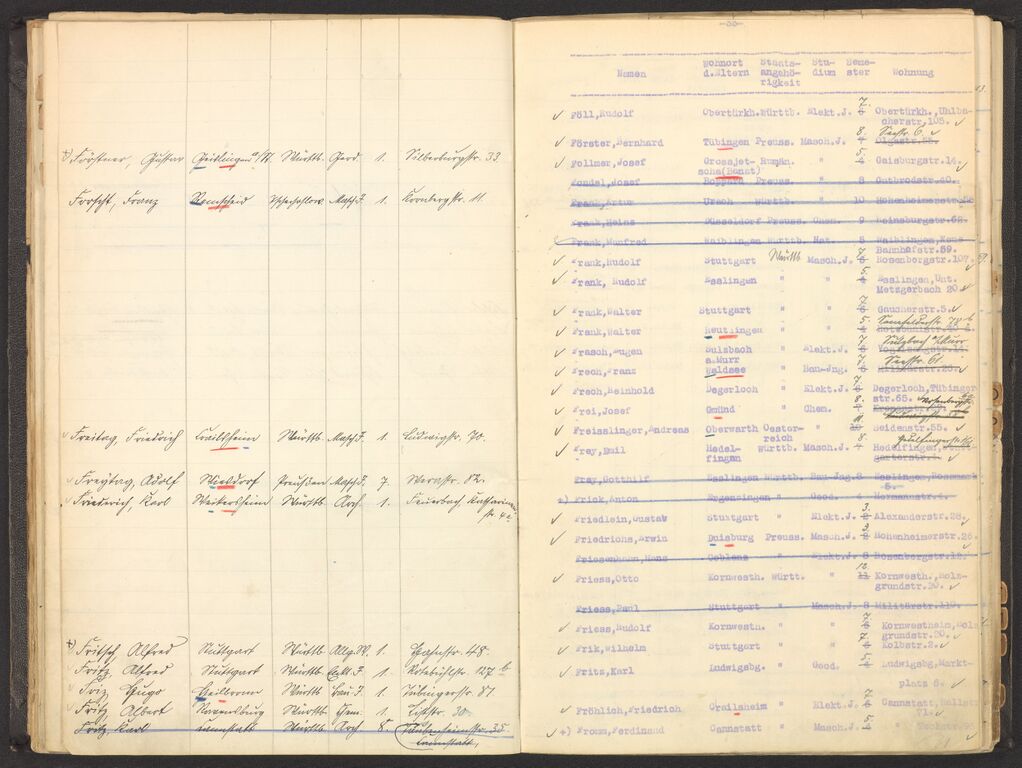 +) Förstner, Gustav Geislingen a/St. Württb. Geod. 1. Silberburgstr. 33.
Forscht, Franz Remscheid Tschechoslow. Masch.J. 1. Kornbergstr. 11.
Freitag, Friedrich Crailsheim Württb. Masch.J. 1. Ludwigstr. 70.
Freytag, Adolf Preußen Masch.J. 7. Werastr. 82.
Friederich, Karl Weikersheim Württb. Arch. 1. Feuerbach, Katharinen-
str. 4c
+) Fritsch, Alfred Stuttgart Württb. Allg.W. 1. Hasenstr. 48.
Fritz, Alfred Stuttgart Württb. Elekt.J. 1. Rotebühlstr. 127 b
Friz, Hugo Heilbronn Württb. Bau-J. 1. Tübingerstr. 87
Fritz, Albert Ravensburg Württb. 1. Liststr. 30.
Fritz, Karl Cannstatt Württb. Arch. 8. Taubenheimstr. 35
Cannstatt,
-33-
Namen Wohnort d.Eltern Staats-angehö-rigkeit Stu-dium Seme-ster Wohnung
7.
Föll, Rudolf Obertürkh. Württb. Elekt.J. 6 Obertürkh., Uhlba-
cherstr, 105.
8. Seestr. 6
Förster, Bernhard Tübingen Preuss. Masch.J. 4 Olgastr.
5.
Follmer, Josef Grossjet- Rumän. " 4 Gaisburgstr. 14.
scha(Banat)
Fondel, Josef Boppard Preuss. " 8 Gutbrodstr. 40.
Frank, Artur Urach Württb. " 10 Hohenheimerstr.
Frank, Heinz Düsseldorf Preuss. Chem. 9 Reinsburgstr. 62.
Frank, Manfred Waiblingen Württb. Mat. 5 Waiblingen,
7. Bahnhofstr. 59.
Frank, Rudolf Stuttgart Württb Masch.J. 6 Rosenbergstr. 107.
5.
Frank, Rudolf Esslingen " " 4 Esslingen, Unt.
Metzgerbach 20
7.
Frank, Walter Stuttgart " " 6 Gaucherstr. 5.
5.
Frank, Walter Reutlingen " " 4
7. Sulzbach a/Murr
Frasch, Eugen Sulzbach " Elekt.J. 6
a.Murr 7. Seestr. 61
Frech, Franz Waldsee " Bau-Jng. 6 Militärstr.
7.
Frech, Reinhold Degerloch " Elekt.J. 6 Degerloch, Tübinger
8. str. 65.
Frei, Josef Gmünd " Chem. 7
11.
Freisslinger, Andreas Oberwarth Oester- " 10 Seidenstr. 55.
reich 8.
Frey, Emil Hedel- Württb. Masch.J. 4 Hedelfingen,
fingen
Frey, Gotthilf Esslingen Württb. Bau-Jng. 8 Esslingen,
5.
+) Frick, Anton Ergenzingen " Geod. 4 Hermannstr. 4.
3.
Friedlein, Gustav Stuttgart " Elekt.J. 2 Alexanderstr. 28.
3.
Friedrichs, Erwin Duisburg Preuss. Masch.J. 2 Hohenheimerstr. 26.
Friesenhann, Hans Coblenz " Elekt.J. 8 Rosenbergstr. 12.
12.
Friess, Otto Kornwesth. Württ. " 11 Kornwesth., Holz-
grundstr. 20.
Friess, Paul Stuttgart " Masch.J. 8 Militärstr. 119.
7.
Friess, Rudolf Kornwesth. " " 6 Kornwestheim, Holz
7. grundstr. 20.
Frik, Wilhelm Stuttgart " " 6 Kolbstr. 2.
5
Fritz, Karl Ludwigsbg. " Geod. 4 Ludwigsbg, Markt-
platz 6.
7
Fröhlich, Friedrich Crailsheim " Elekt.J. 6 Cannstatt, Hallstr
71.
5.
+) Fromm, Ferdinand Cannstatt " Masch.J. 4